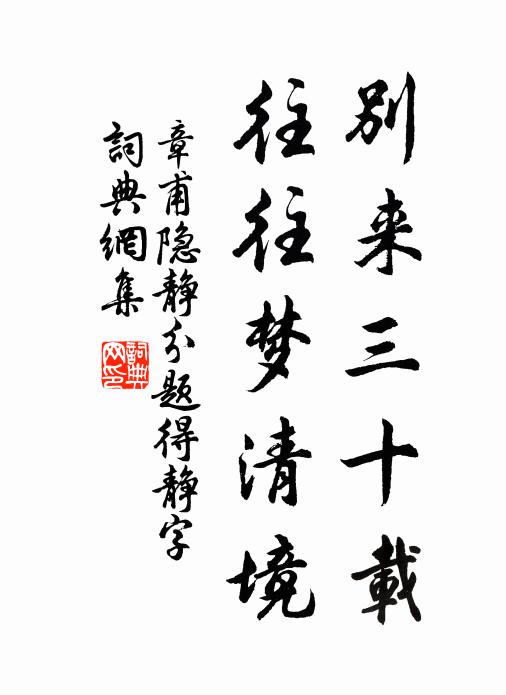 别来三十載
往往梦清境
章甫隐静分题得静字
詞典網集
詞典网印